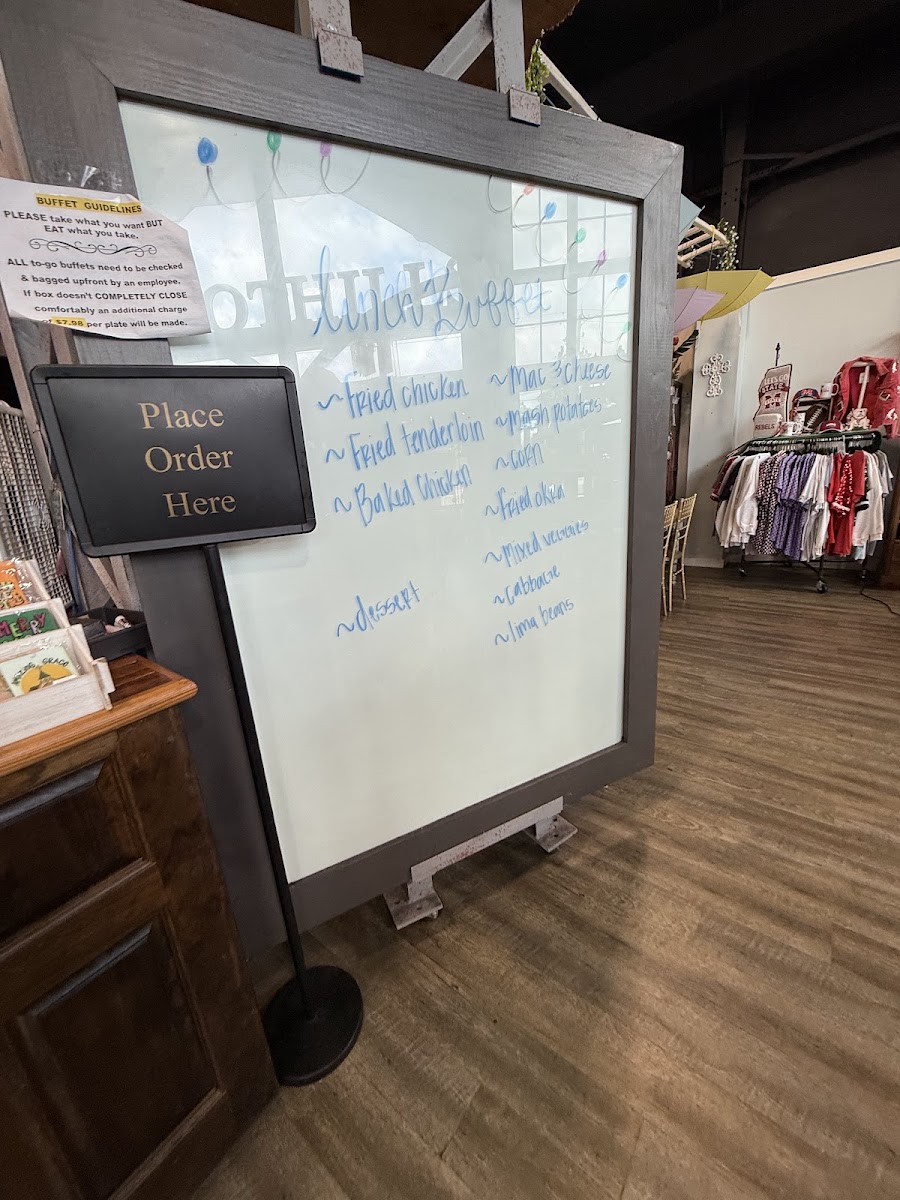 BUFFET GUIDELINES
PLEASE take what you want BUT
EAT what you take.
ALL to-go buffets need to be checked
& bagged upfront by an employee.
If box doesn't COMPLETELY CLOSE
comfortably an additional charge
of $7.98 per plate will be made.
Place
Order
Here
lunch Buffet
~Fried chicken
~Fried tenderloin
~Baked chicken
~dessert
~Mac & cheese
~Mash potatoes
~corn
~Fried okra
~Mixed veggies
~cabbage
~lima beans
MERRY
GRACE
STATE
REBELS